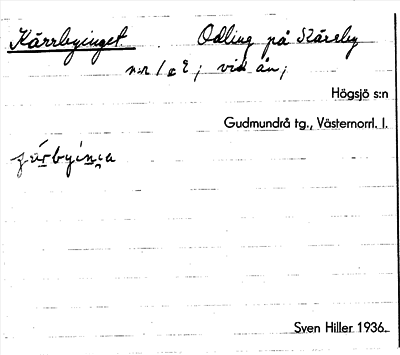 Kärrbyinget. Odling på Kärrby
n:r 1 o 2; vid ån;
Högsjö s:n
Gudmundrå tg., Västernorrl. l.
Sven Hiller 1936.